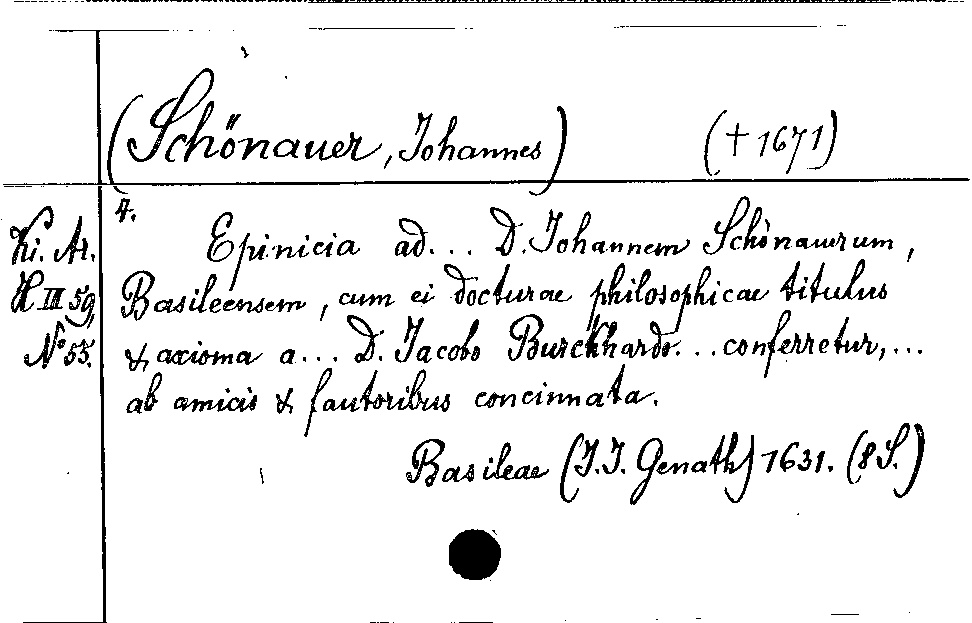 (Schönauer, Johannes) († 1671)
4.
Ki. Ar.
H III 59,
No 55.
Epinicia ad... D. Johannem Schönauerum,
Basileensem, cum ei docturae philosophicae titulus
& axioma a... D. Jacobo Burckhardo... conferretur,...
ab amicis & fautoribus concinnata.
Basileae (J.J. Genath) 1631. (8 S.)